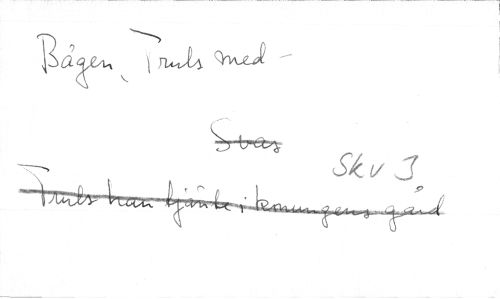 Bågen, Truls med -
Svas
Skv 3
Truls han tjänte i konungens gård